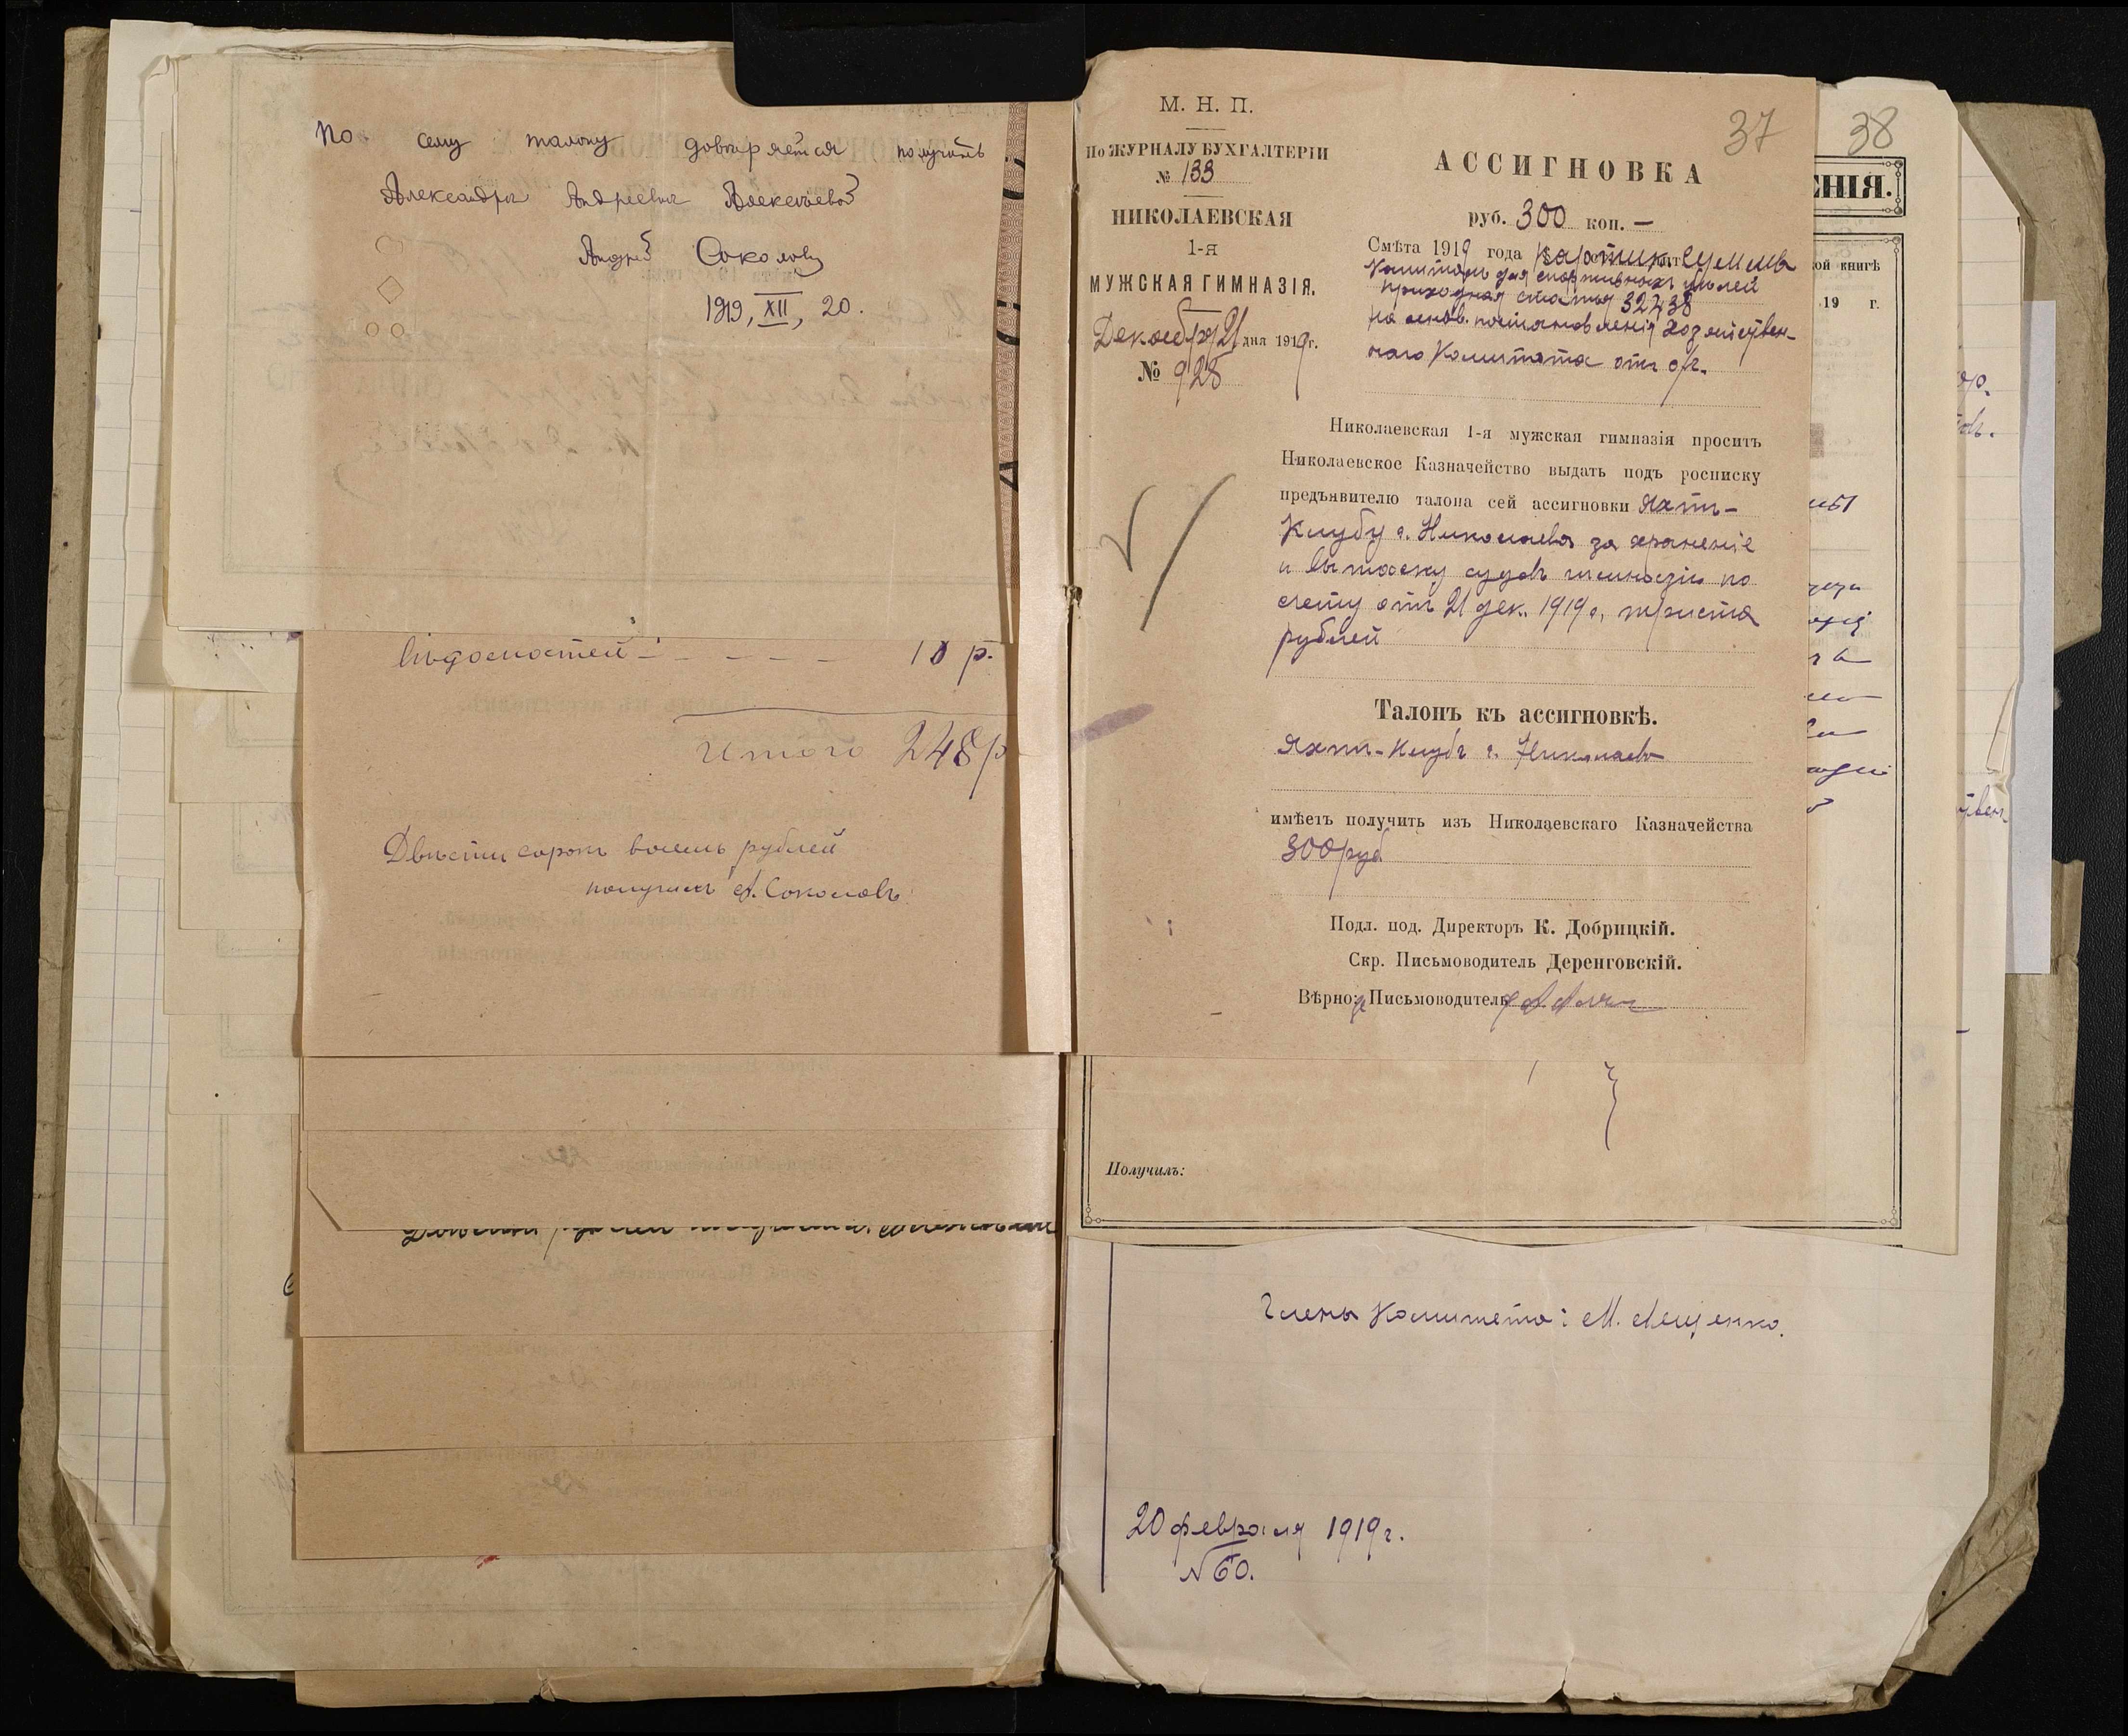 По сему талону довѣряется получить
Александрѣ Андреевнѣ Алексѣевой
Андрей Соколовъ
1919, XII, 20.
вѣдомостей - - - - 10 р.
Итого 248 р
Двѣсти сорокъ восемь рублей
получилъ А. Соколовъ.
37
М. Н. П.
По ЖУРНАЛУ БУХГАЛТЕРІИ
№ 133
НИКОЛАЕВСКАЯ
1-я
МУЖСКАЯ ГИМНАЗІЯ.
Декабря 21 дня 1919 г.
№ 928
АССИГНОВКА
руб. 300 коп. —
Смѣта 1919 года
для спортивныхъ цѣлей
приходная статья 32438
на основ. постановленія Хозяйствен-
наго Комитета отъ
Николаевская 1-я мужская гимназія проситъ
Николаевское Казначейство выдать подъ росписку
предъявителю талона сей ассигновки Яхтъ-
Клубу г. Николаева за храненіе
и вытаску судовъ гимназіи по
счету отъ 21 дек. 1919 г. триста
рублей
Талонъ къ ассигновкѣ.
Яхтъ-Клубъ г. Николаева
имѣетъ получить изъ Николаевскаго Казначейства
300 руб
Подл. под. Директоръ К. Добрицкій.
Скр. Письмоводитель Деренговскій.
Вѣрно: Письмоводитель
38
ЕНІЯ.
ой книгѣ
19 г.
Получилъ:
Члены Комитета: М. Лещенко.
20 февраля 1919 г.
№ 60.